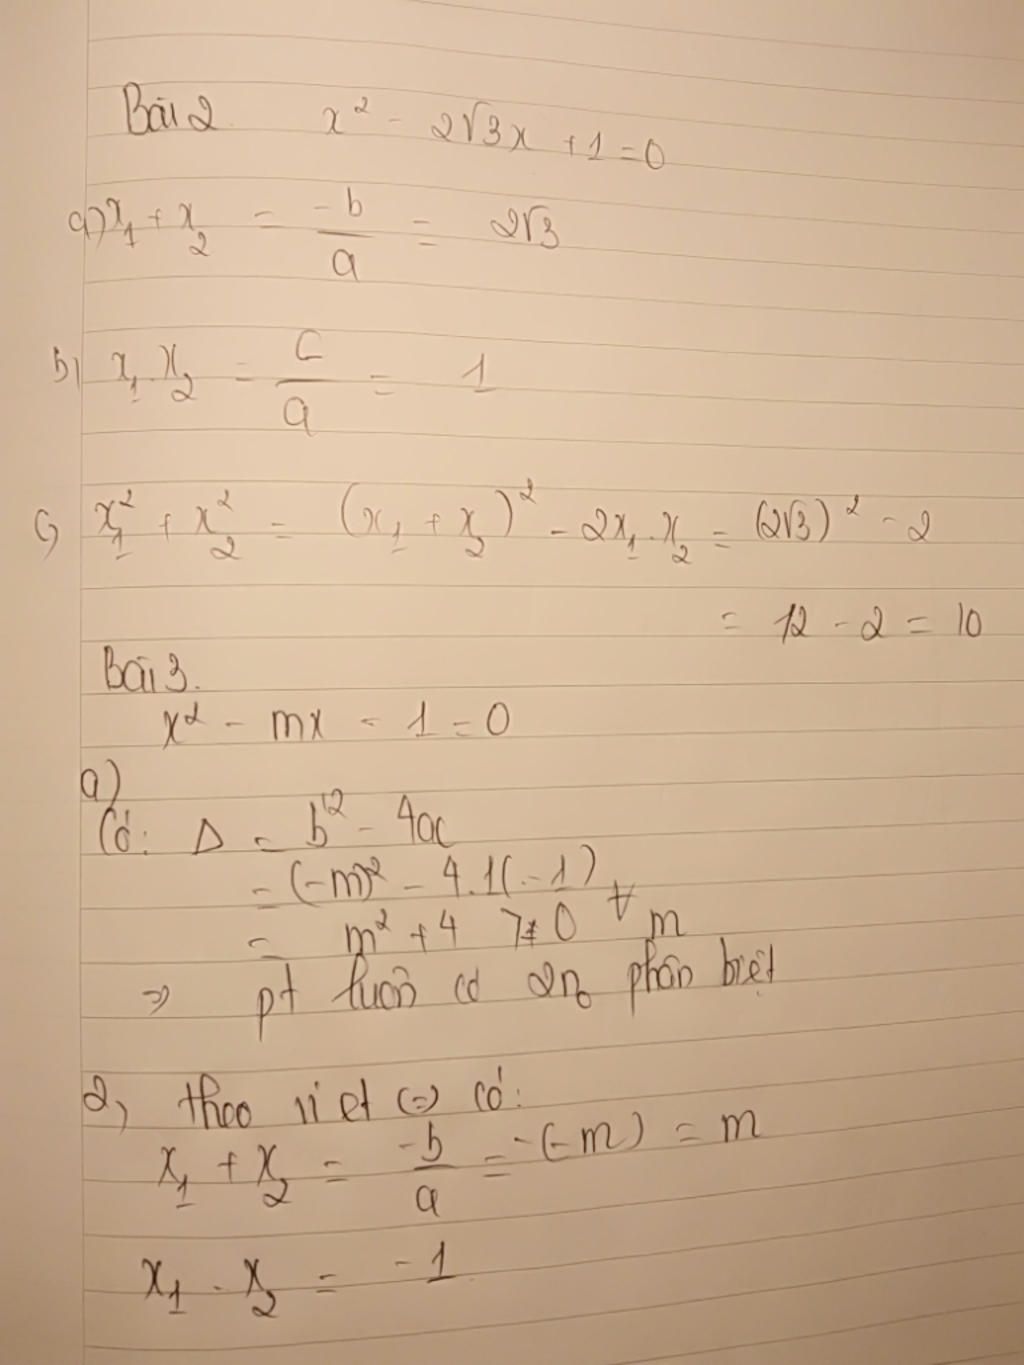 Bài 2 x² - 2√3x + 1 = 0
a) x₁ + x₂ = -b/a = 2√3
b) x₁ . x₂ = c/a = 1
c) x₁² + x₂² = (x₁ + x₂)² - 2x₁ . x₂ = (2√3)² - 2
= 12 - 2 = 10
Bài 3.
x² - mx - 1 = 0
a)
Có: Δ = b² - 4ac
= (-m)² - 4.1(-1)
= m² + 4 > 0 ∀ m
=> pt luôn có 2n₀ phân biệt
2, theo vi et (=) có:
x₁ + x₂ = -b/a = -(-m) = m
x₁ . x₂ = -1